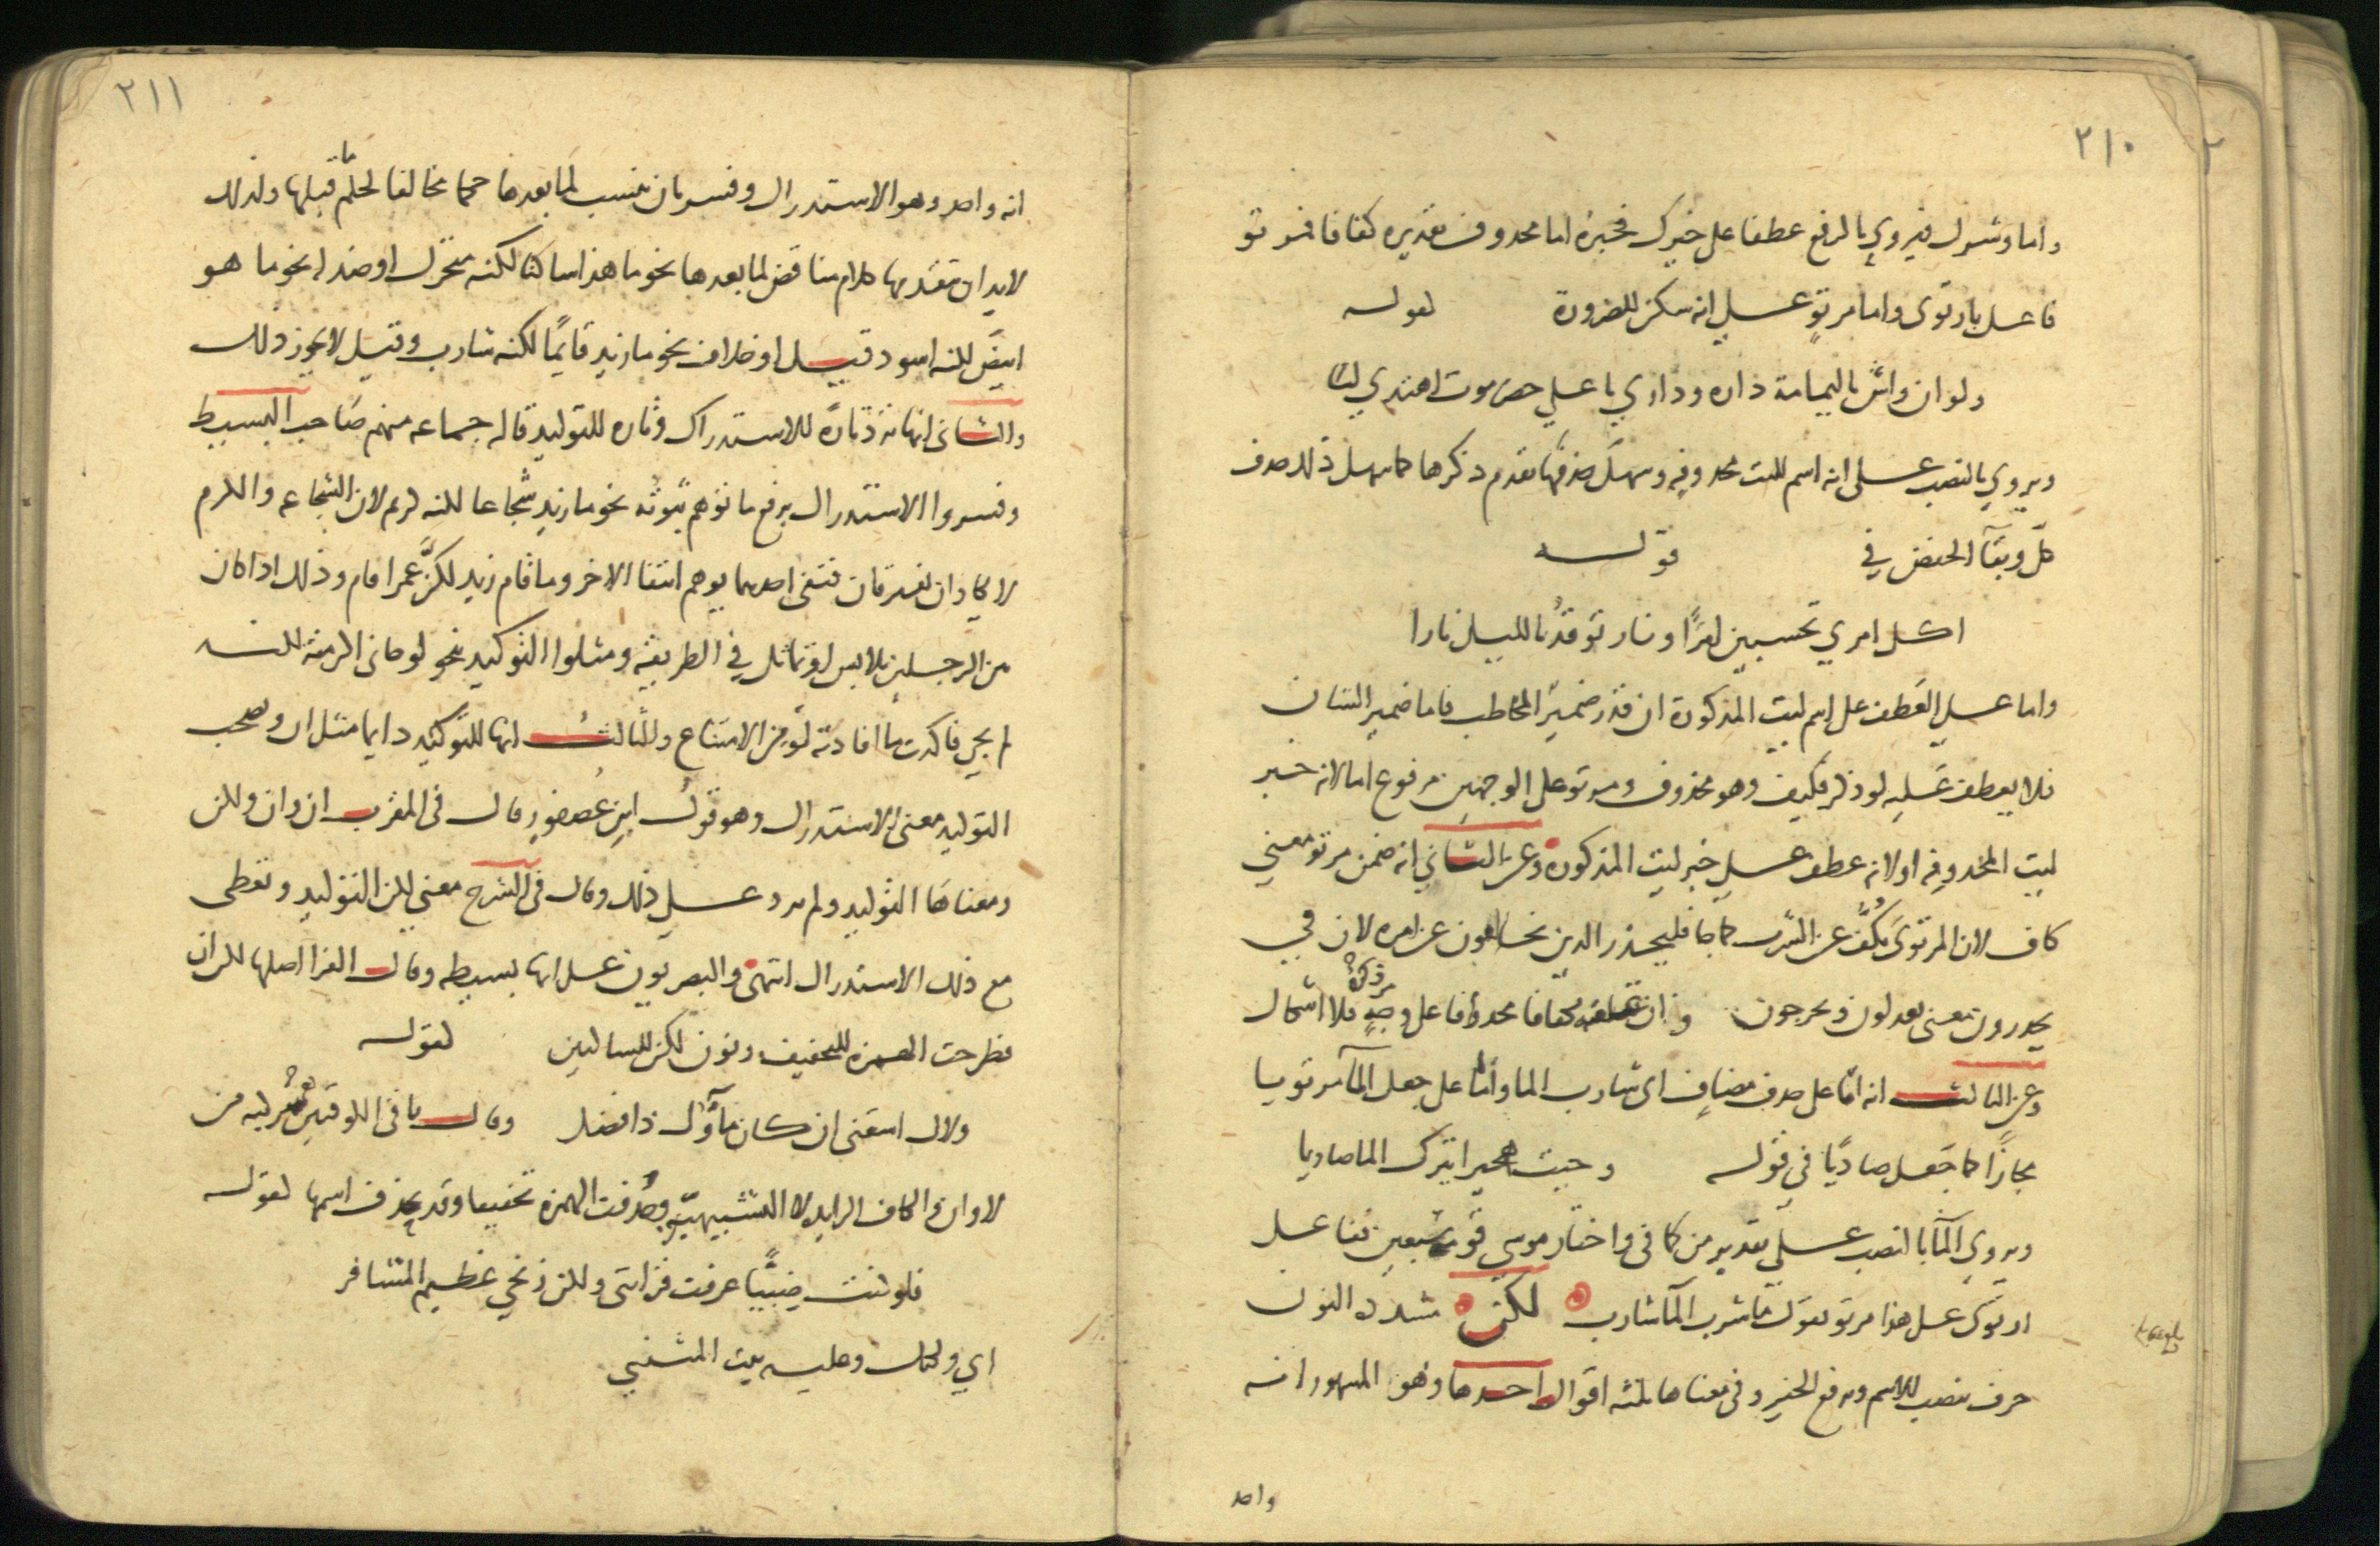 ٢١٠
واما وشرك فيروي بالرفع عطفا على خيرك فخبره اما محذوف تقديره كفافا فمرتو
فاعل بارتوى واما مرتو على انه سكن للضرورة كقوله
ولو ان واش باليمامة داره وداري باعلى حضرموت اهتدي ليا
ويروي بالنصب على انه اسم لليت محذوفه وسهل حذفها تقدم ذكرها كما سهل ذلك حذف
كل وبقآ الخفض في قوله
اكل امري تحسبين امرًا ونار توقدُ بالليل نارا
واما على العطف على اسم ليت المذكورة ان قدر ضمير المخاطب فاما ضمير الشان
فلا يعطف عليه لو ذكر فكيف وهو محذوف ومرتو على الوجهين مرفوع اما لانه خبر
ليت المحذوفه او لانه عطف على خبر ليت المذكوره وعن الثاني انه ضمن مرتو معنى
كاف لان المرتوى يكُفّ عن الشرب كما جا فليحذر الذين يخالفون عن امره لان في
يحذرون معنى يعدلون ويخرجون وان علقته بكفافا محذوفا على وجه مر ذكره فلا اشكال
وعن الثالث انه اما على حذف مضاف اى شارب الما واما على جعل المآ مرتويا
مجازًا كما جعل صاديًا في قوله وجبت هجيرا يترك الما صاديا
ويروي المآ بالنصب على تقدير من كما في واختار موسى قومه سبعين ففاعل
ارتوى على هذا مرتو تقول ما شرب المآ شارب لكن مشددة النون
حرف ينصب الاسم ويرفع الخبر وفي معناها ثلثه اقوال احدها وهو المشهور انه
واحد
٢١١
انه واحد وهو الاستدراك وفسر بان تنسب لما بعدها حكما مخالفا لحكم ما قبلها ولذلك
لابد ان يتقدمها كلام مناقض لما بعدها نحو ما هذا ساكنا لكنه متحرك او ضد له نحو ما هو
ابيض لكنه اسود قيل او خلاف نحو ما زيد قايمًا لكنه شارب وقيل لا يجوز ذلك
والثاني انها ترد تارةً للاستدراك وتاره للتوكيد قاله جماعه منهم صاحب البسيط
وفسروا الاستدراك برفع ما توهم ثبوته نحو ما زيد شجاعا لكنه كريم لان الشجاعه والكرم
لا يكادان يفترقان فنفى احدهما يوهم انتفا الاخر وما قام زيد لكنّ عمرا قام وذلك اذا كان
بين الرجلين تلابس او تماثل في الطريقة ومثلوا التوكيد بنحو لو جانى اكرمته لكنه
لم يجي فاكدت ما افادته لو من الامتناع والثالث انها للتوكيد دايما مثل ان ويصحب
التوكيد معنى الاستدراك وهو قول ابن عصفور قال في المقرب ان وان ولكن
ومعناها التوكيد ولم يزد على ذلك وقال في الشرح معنى لكن التوكيد وتعطى
مع ذلك الاستدراك انتهى والبصريون على انها بسيطه وقال الفرا اصلها لكن ان
فطرحت الهمزه للتخفيف ونون لكن للساكنين كقوله
ولاك اسقنى ان كان مآؤك ذا فضل وقال باقى الكوفيين مركبه من
لا وان والكاف الزايده لا التشبيهيّه وحذفت الهمزه تخفيفا وقد يحذف اسمها كقوله
فلو كنت ضبيًّا عرفت قرابتى ولكن زنجي عظيم المشافر
اي ولكنك وعليه بيت المتنبي